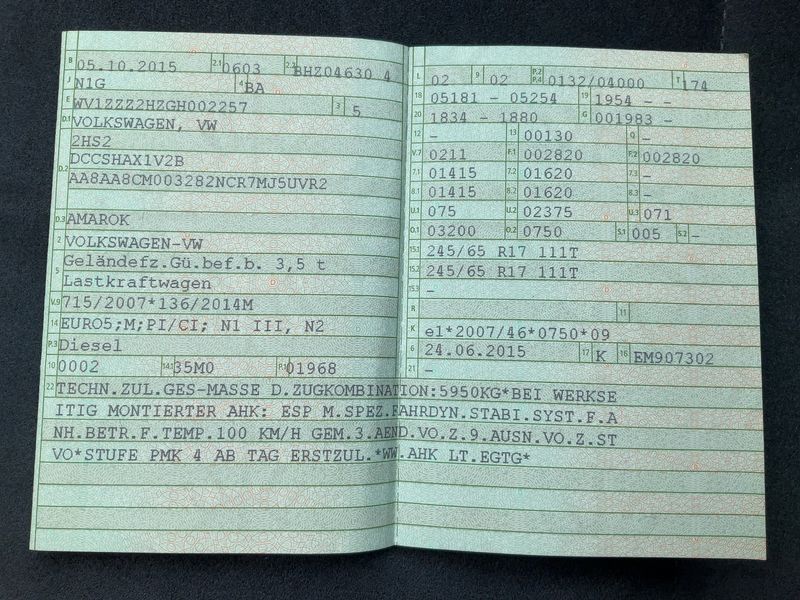 B 05.10.2015 2.1 0603 2.2 BHZ04630 4
J N1G 4 BA
E WV1ZZZ2HZGH002257 3 5
D.1 VOLKSWAGEN, VW
2HS2
D.2 DCCSHAX1V2B
AA8AA8CM003282NCR7MJ5UVR2
D.3 AMAROK
2 VOLKSWAGEN-VW
5 Geländefz.Gü.bef.b. 3,5 t
Lastkraftwagen
V.9 715/2007*136/2014M
14 EURO5;M;PI/CI; N1 III, N2
P.3 Diesel
10 0002 14.1 35M0 P.1 01968
L 02 9 02 P.2 P.4 0132/04000 T 174
18 05181 - 05254 19 1954 - -
20 1834 - 1880 G 001983 -
12 - 13 00130 Q -
V.7 0211 F.1 002820 F.2 002820
7.1 01415 7.2 01620 7.3 -
8.1 01415 8.2 01620 8.3 -
U.1 075 U.2 02375 U.3 071
O.1 03200 O.2 0750 S.1 005 S.2 -
15.1 245/65 R17 111T
15.2 245/65 R17 111T
15.3 -
R 11
K e1*2007/46*0750*09
6 24.06.2015 17 K 16 EM907302
21 -
22 TECHN.ZUL.GES-MASSE D.ZUGKOMBINATION:5950KG*BEI WERKSE
ITIG MONTIERTER AHK: ESP M.SPEZ.FAHRDYN.STABI.SYST.F.A
NH.BETR.F.TEMP.100 KM/H GEM.3.AEND.VO.Z.9.AUSN.VO.Z.ST
VO*STUFE PMK 4 AB TAG ERSTZUL.*WW.AHK LT.EGTG*